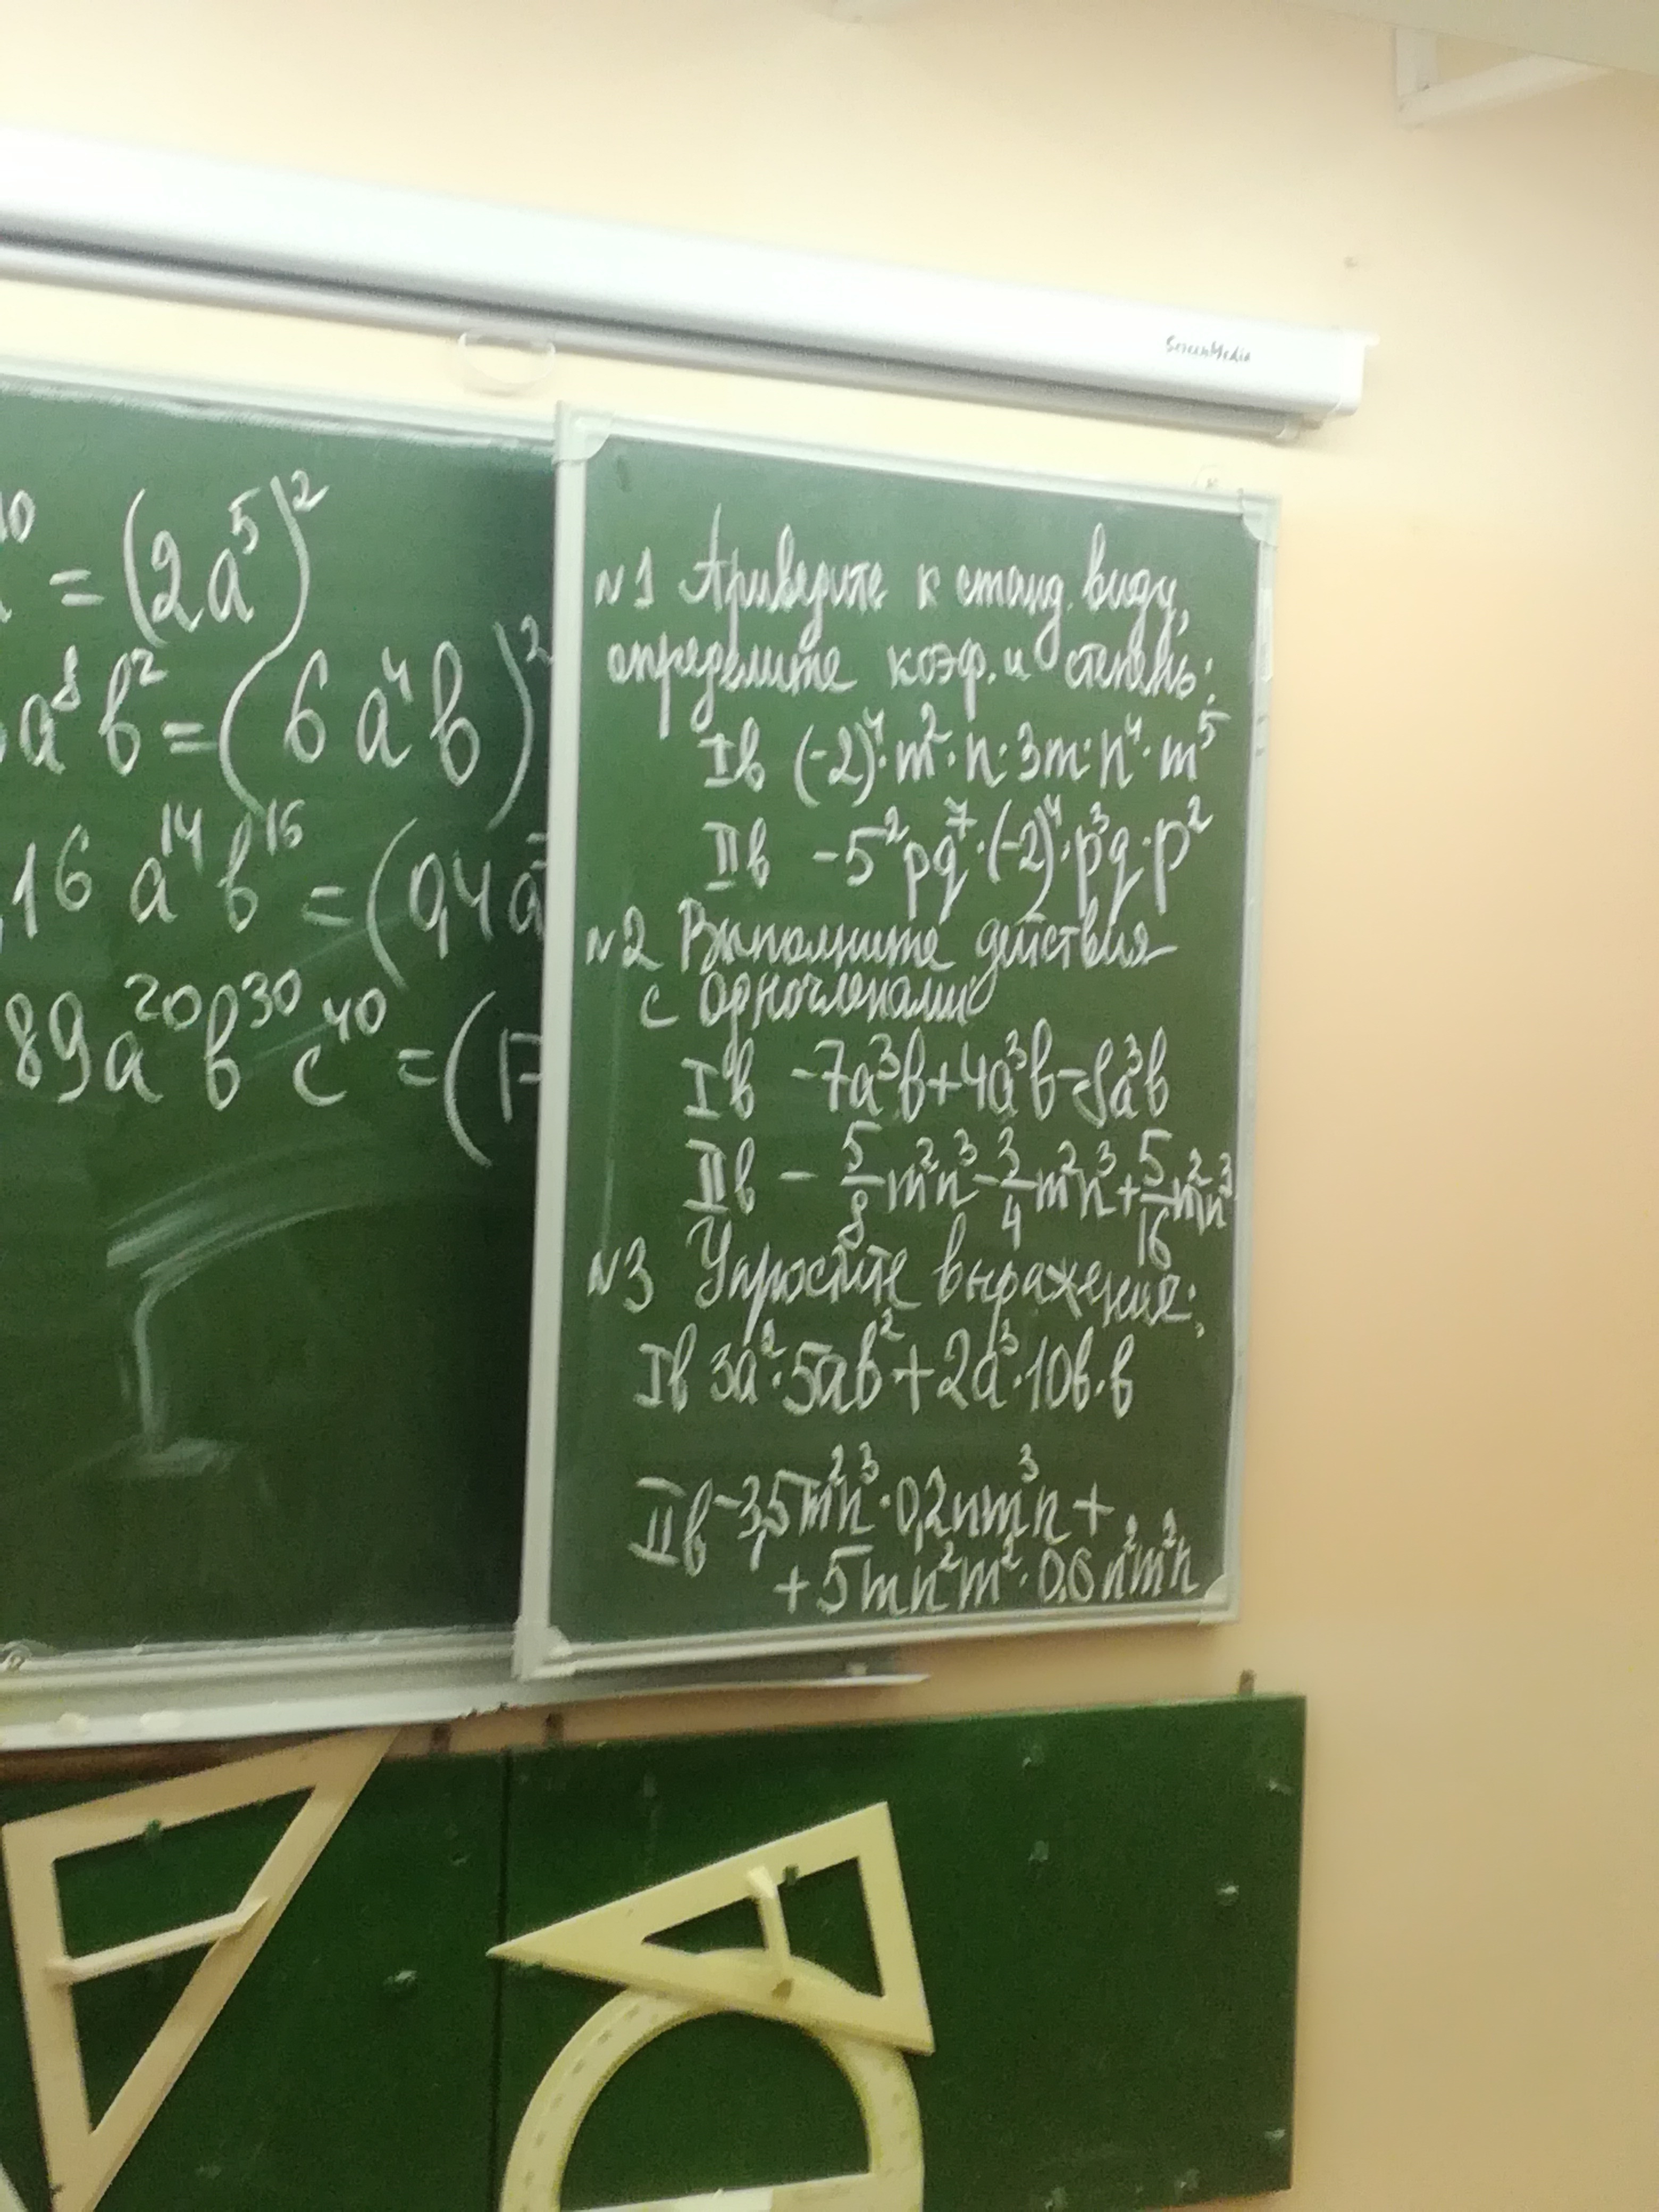 ScreenMedia
10 = (2a⁵)²
a⁸b² = (6a⁴b)²
,16 a¹⁴ b¹⁶ = (0,4a⁷
89a²⁰b³⁰c⁴⁰ = (17
N1 Приведите к станд. виду,
определите коэф. и степень:
Iв (-2)⁴·m²·n·3m·n⁴·m⁵
IIв -5²pq⁷·(-2)⁴·p³q·p²
N2 Выполните действия
с одночленами
Iв -7a³b+4a³b-8a³b
IIв - 5/8 m²n³ - 3/4 m²n³ + 5/16 m²n³
N3 Упростите выражение:
Iв 3a²·5ab²+2a³·10b·b
IIв -3,5m²n³·0,2nm³n +
+5mn²m²·0,6n²m²n